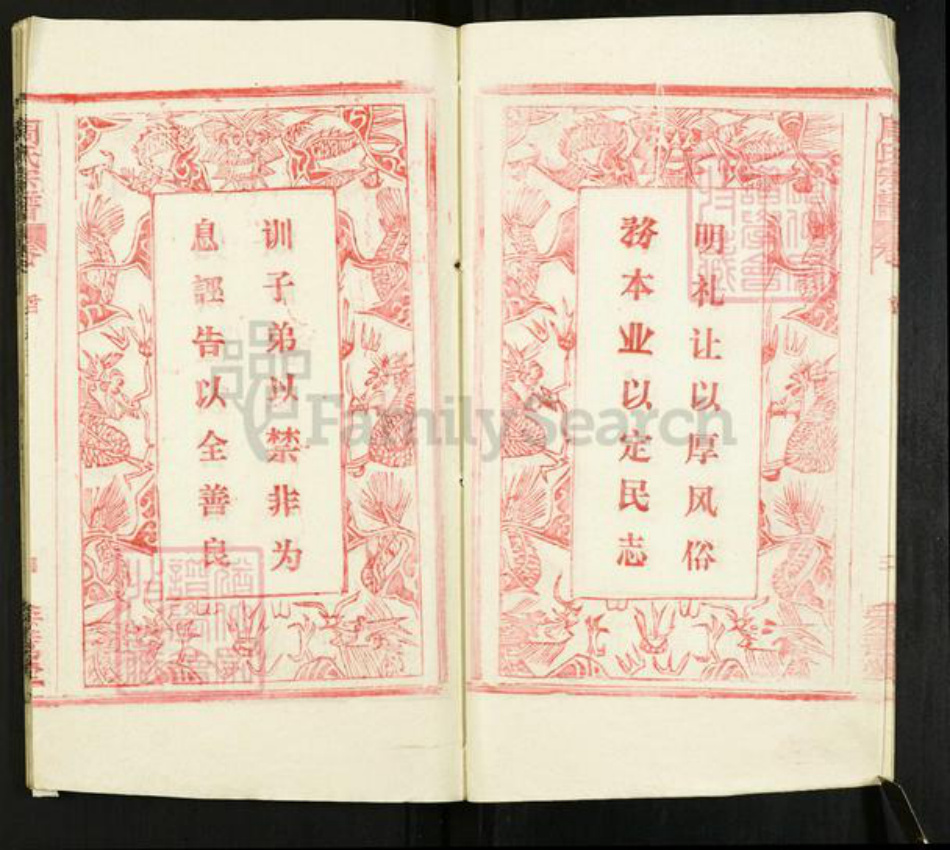 明礼让以厚风俗
務本业以定民志
训子弟以禁非为
息誣告以全善良
FamilySearch